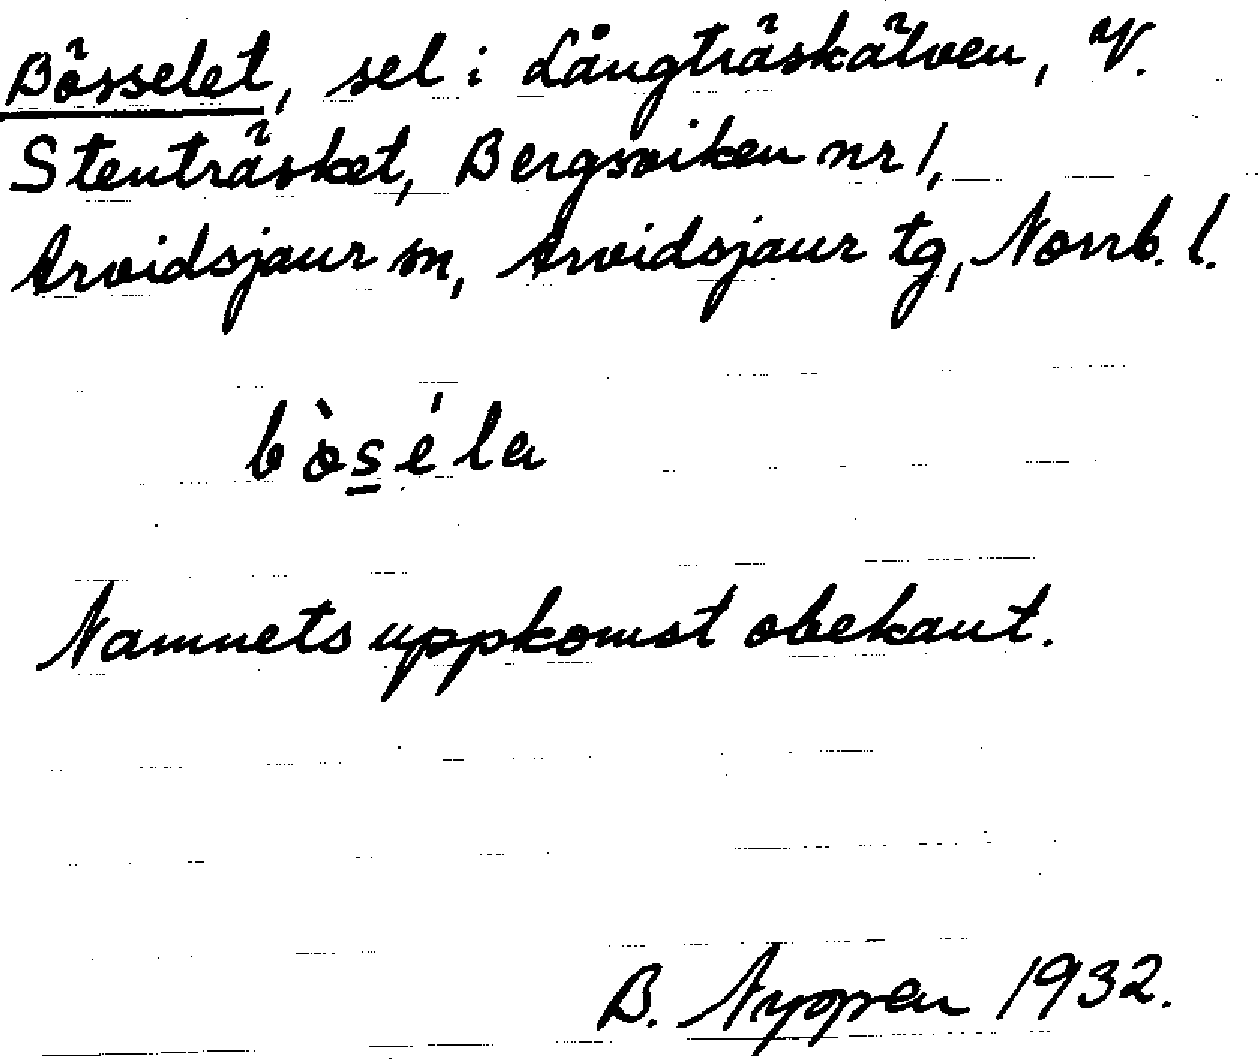 Bösselet, sel i Långträskälven, V.
Stenträsket, Bergsviken nr 1,
Arvidsjaur sn, Arvidsjaur tg, Norrb. l.
bòsé la
Namnets uppkomst obekant.
B. 1932.